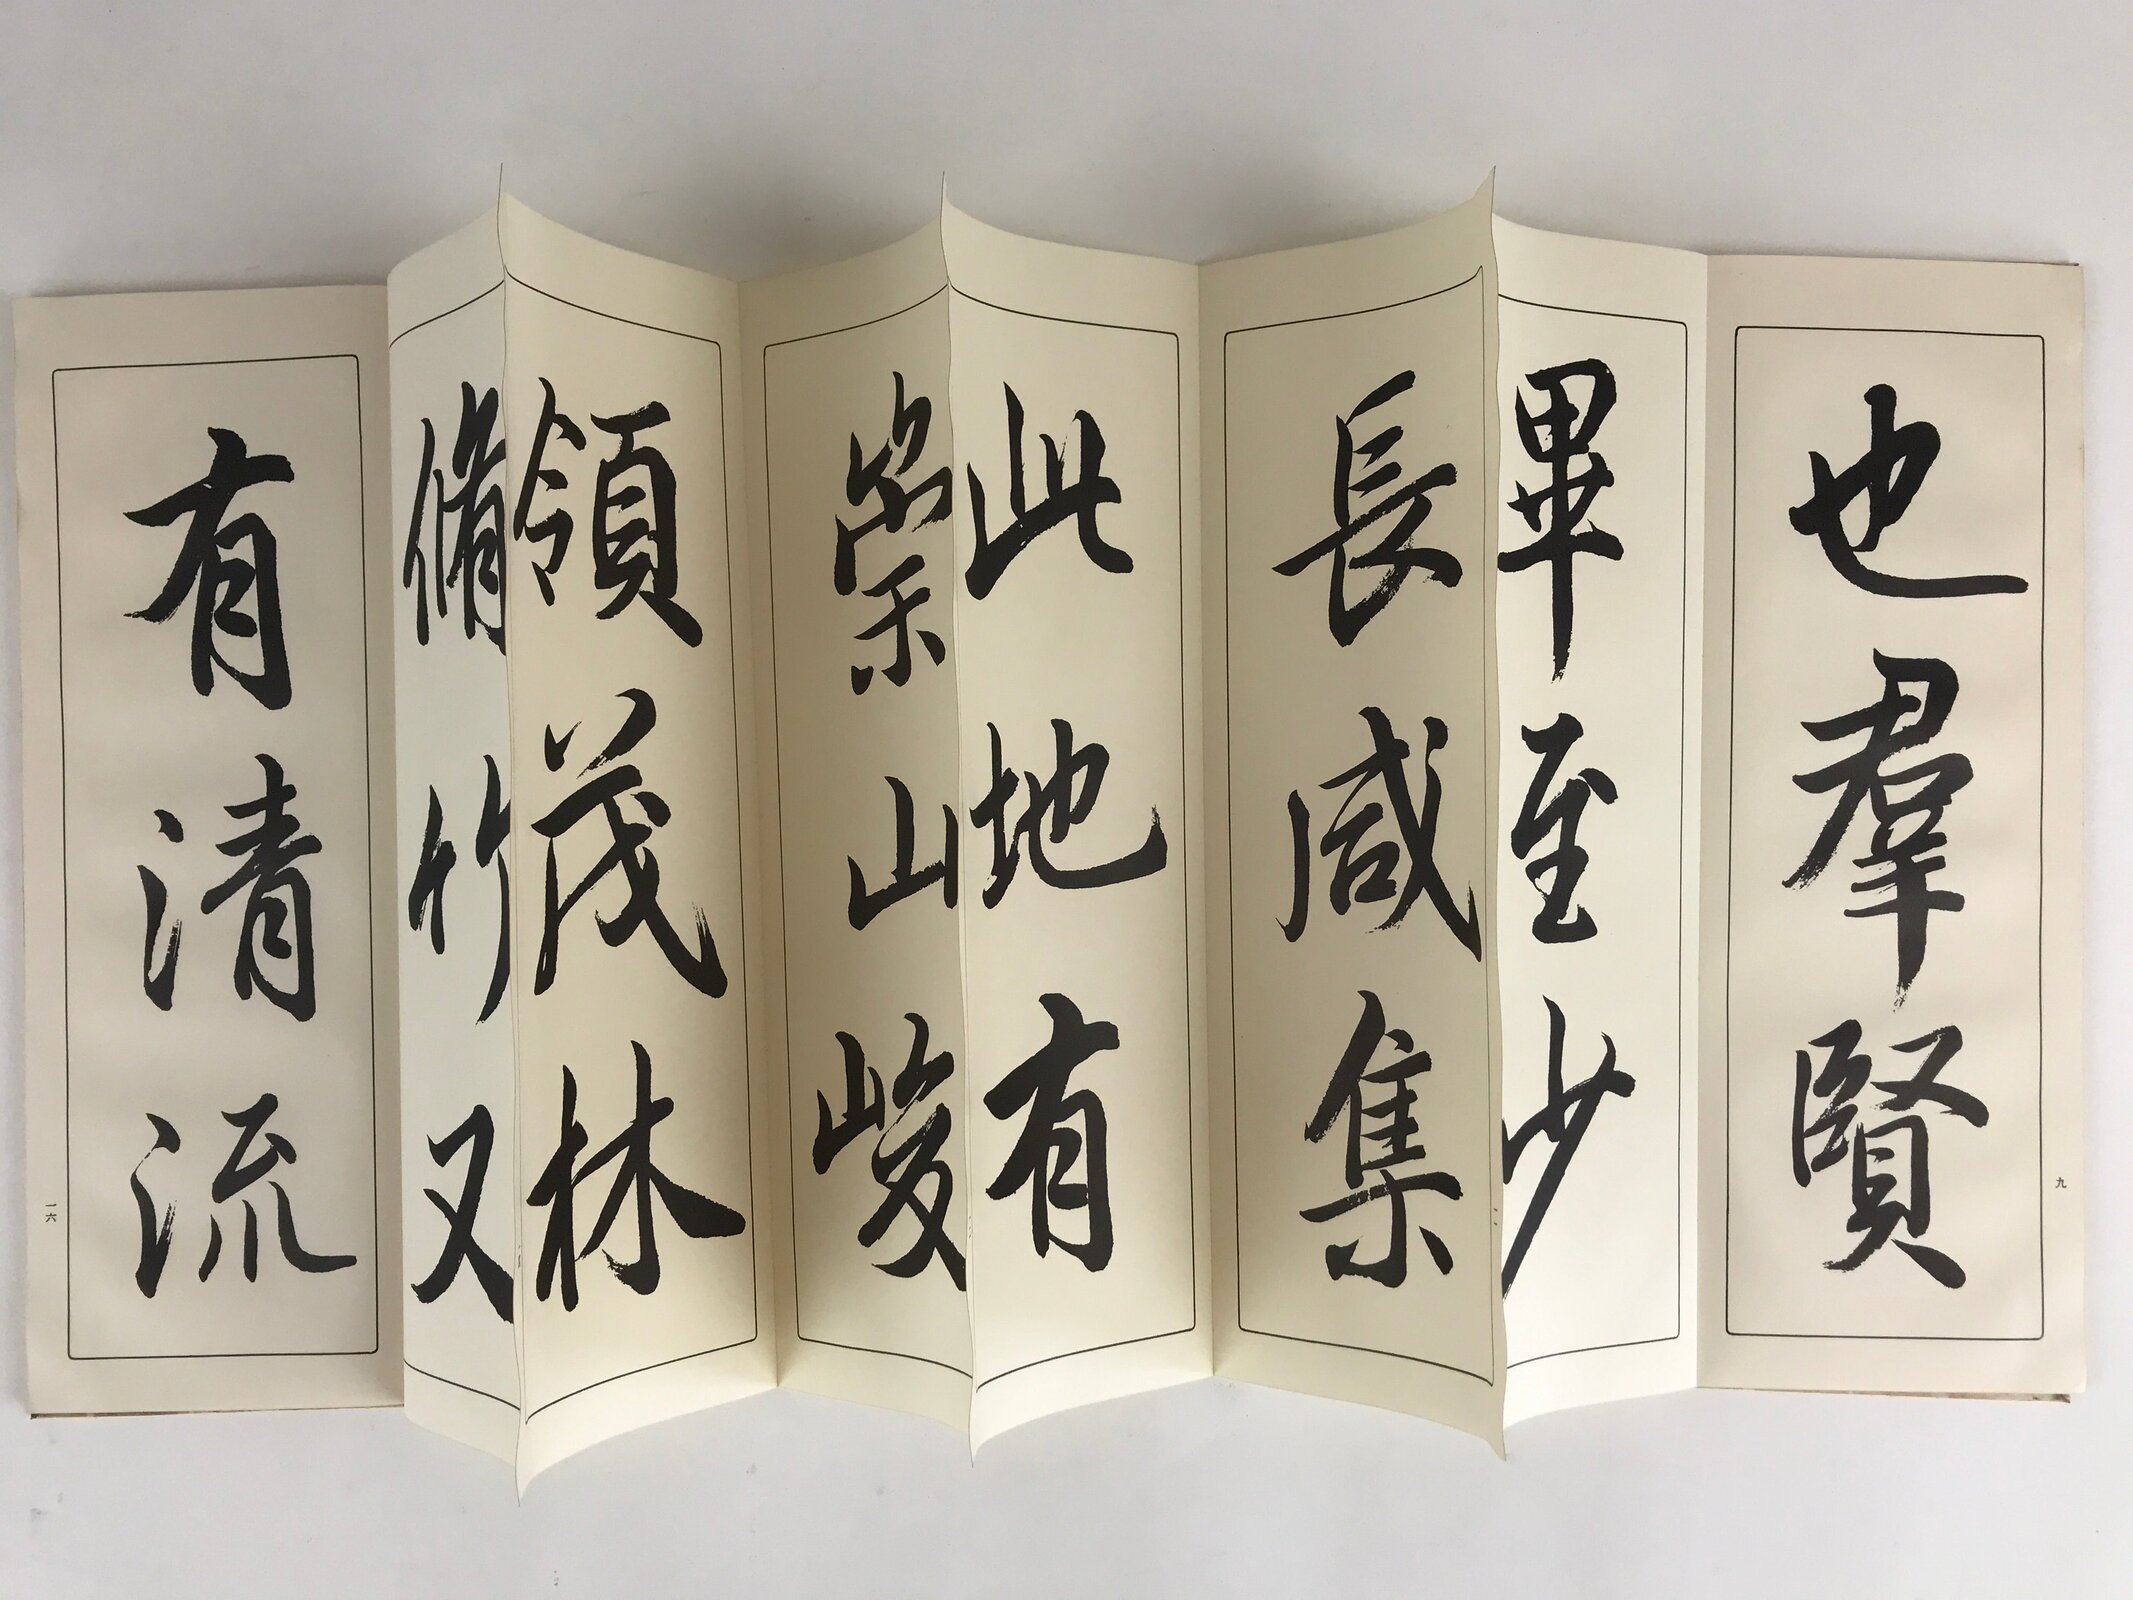 也羣賢
畢至少
長咸集
此地有
崇山峻
領茂林
脩竹又
有清流
九
一六